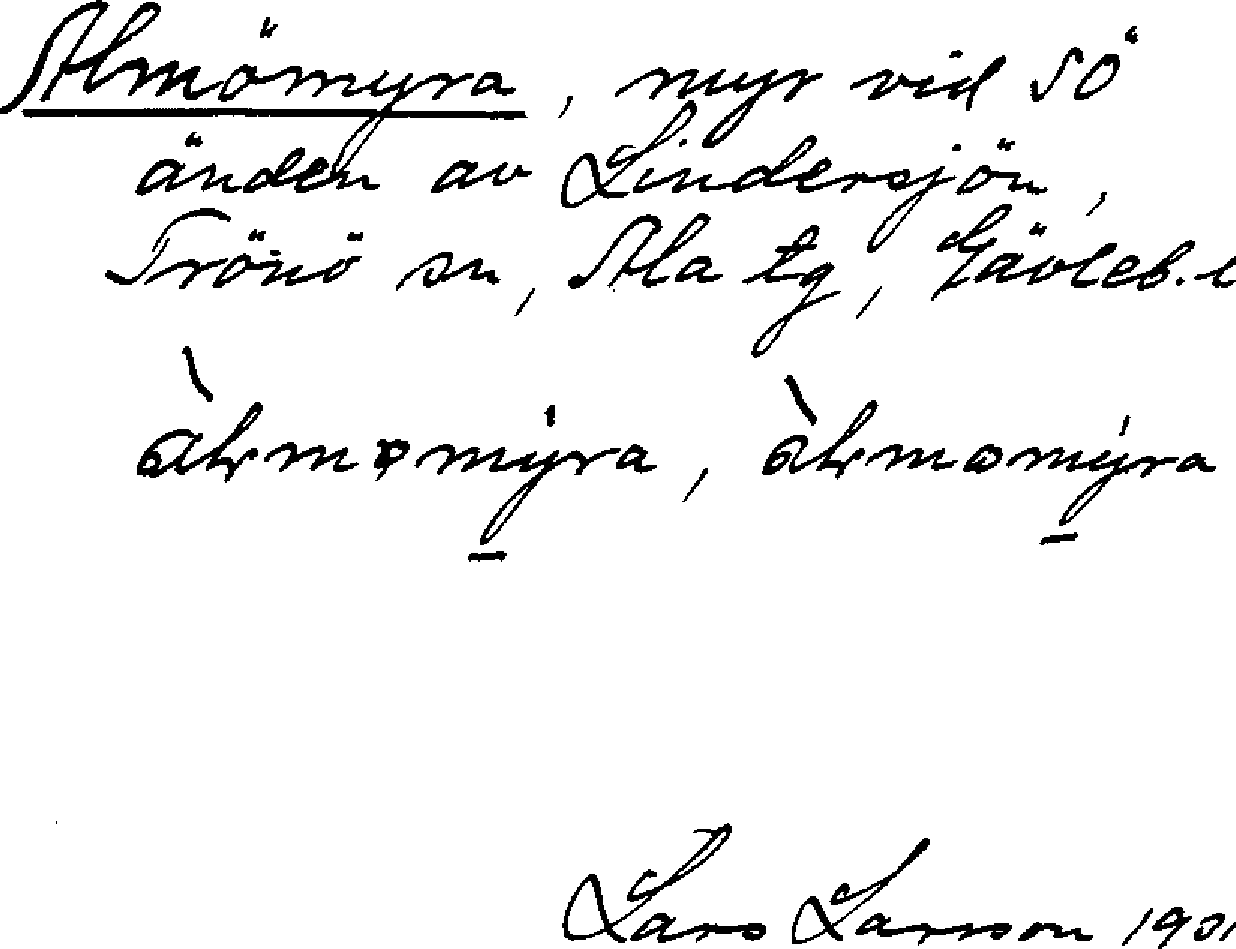 Almömyra, myr vid SÖ
änden av Lindersjön,
Trönö sn, Ala tg, Gävleb. l
àlmomýra, àlmomýra
Lars Larsson 1901